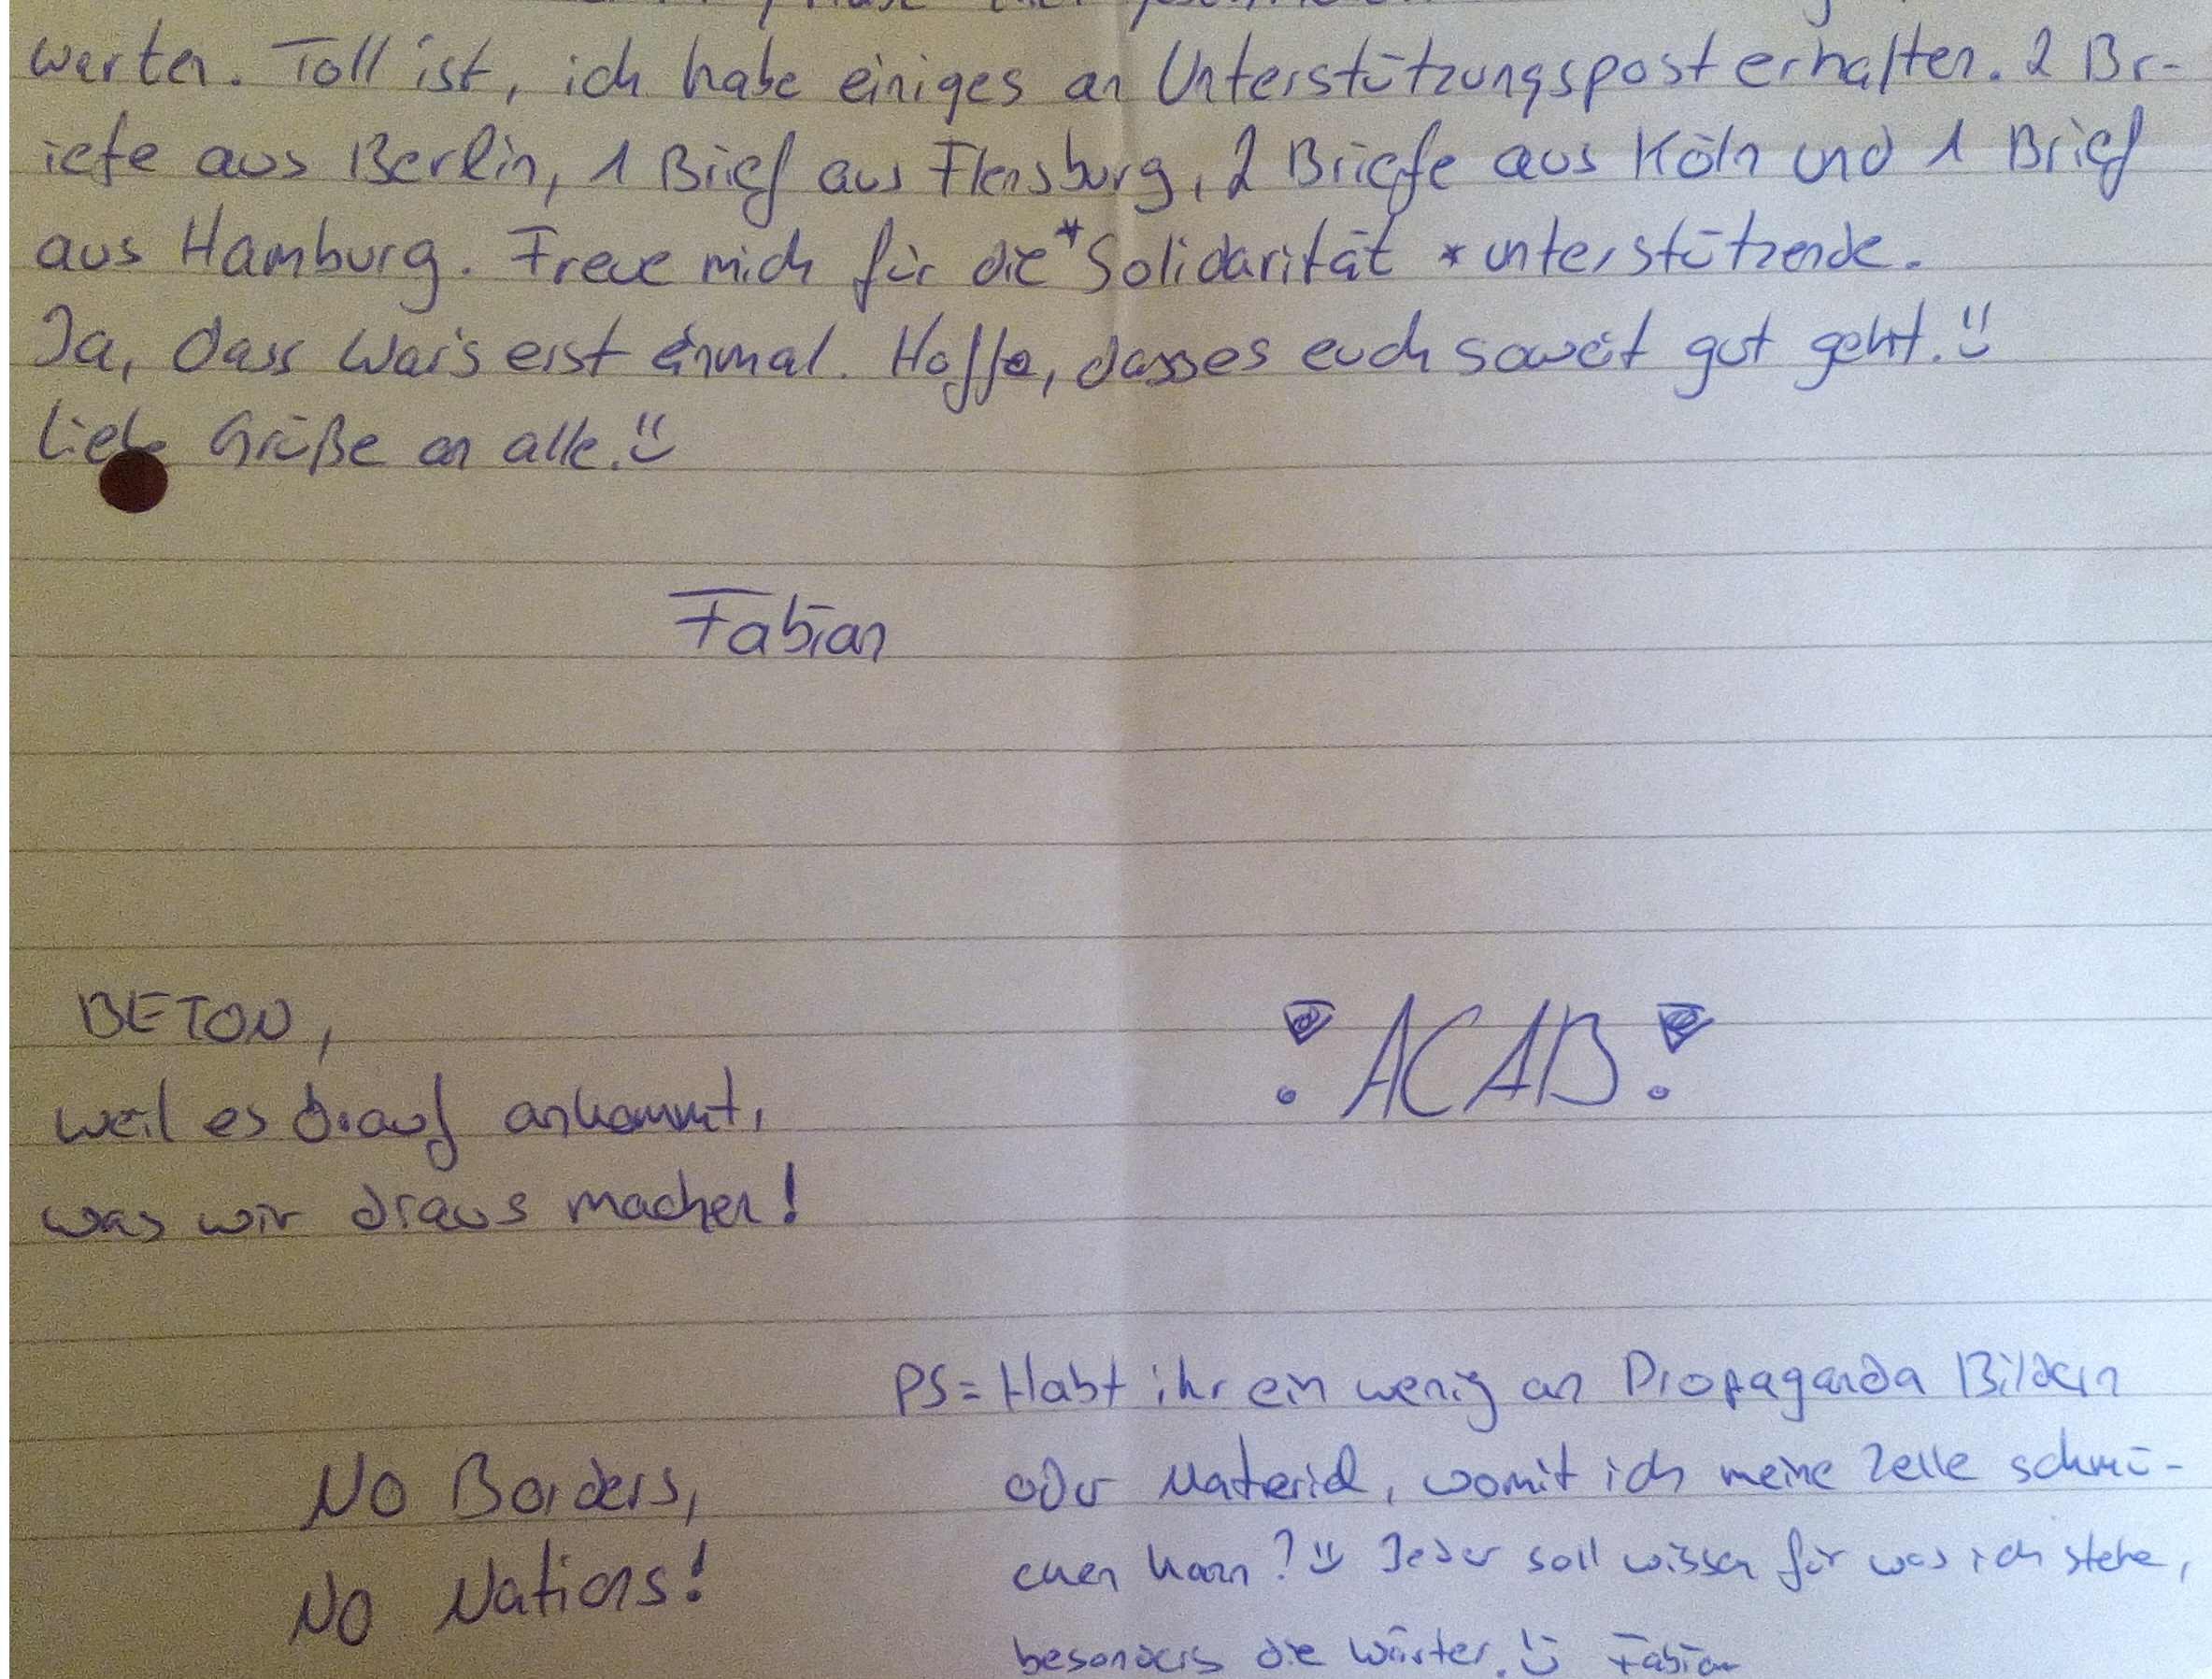 warten. Toll ist, ich habe einiges an Unterstützungspost erhalten. 2 Br-
iefe aus Berlin, 1 Brief aus Flensburg, 2 Briefe aus Köln und 1 Brief
aus Hamburg. Freue mich für die *Solidarität *unterstützende.
Ja, dass war's erst einmal. Hoffe, dasses euch soweit gut geht. :)
Liebe Grüße an alle. :)
Fabian
BETON,
weil es drauf ankommt,
was wir draus machen!
! ACAB !
No Borders,
No Nations!
PS = Habt ihr ein wenig an Propaganda Bildern
oder Material, womit ich meine Zelle schmü-
cken kann? :) Jeder soll wissen für was ich stehe,
besonders die Wärter. :) Fabian